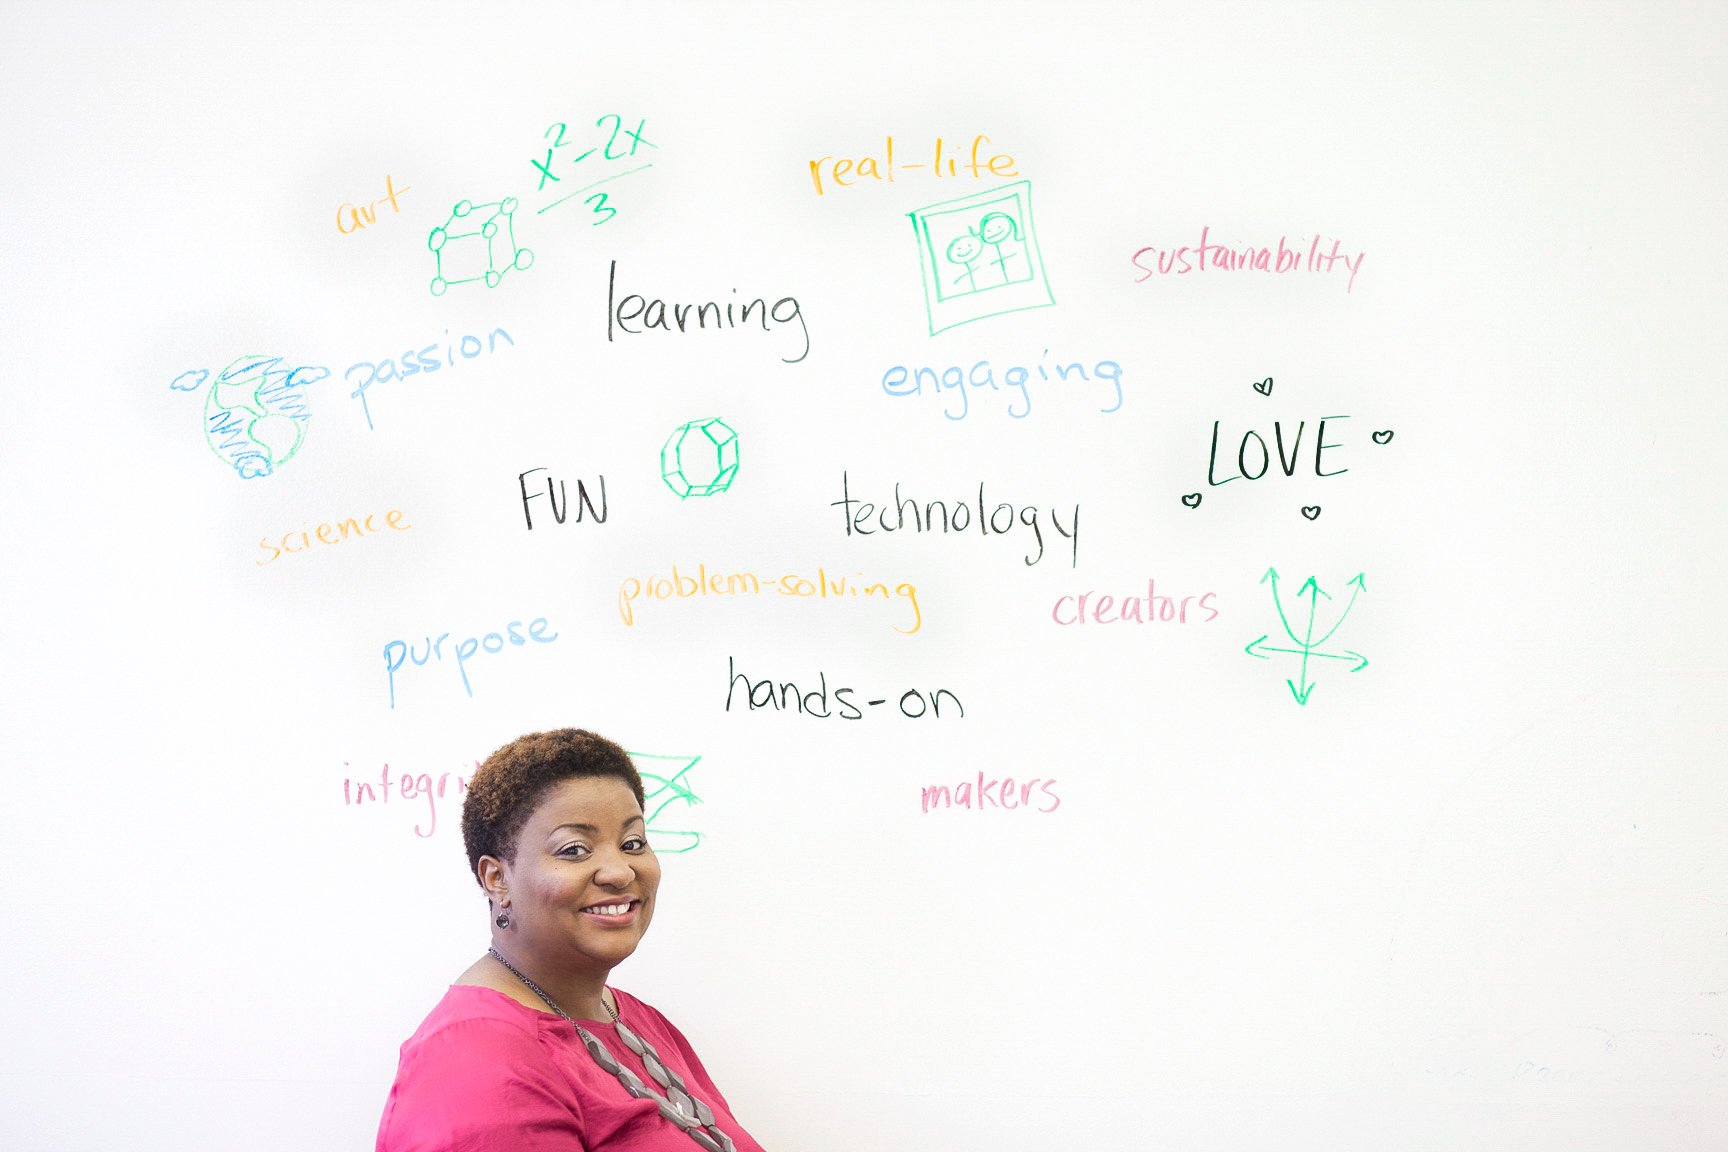 art
x² - 2x
3
real-life
sustainability
learning
passion
engaging
LOVE
FUN
technology
science
problem-solving
creators
purpose
hands-on
integri
makers